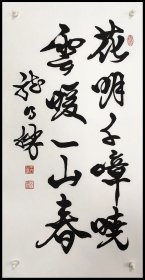 花明千嶂曉
雲暖一山春